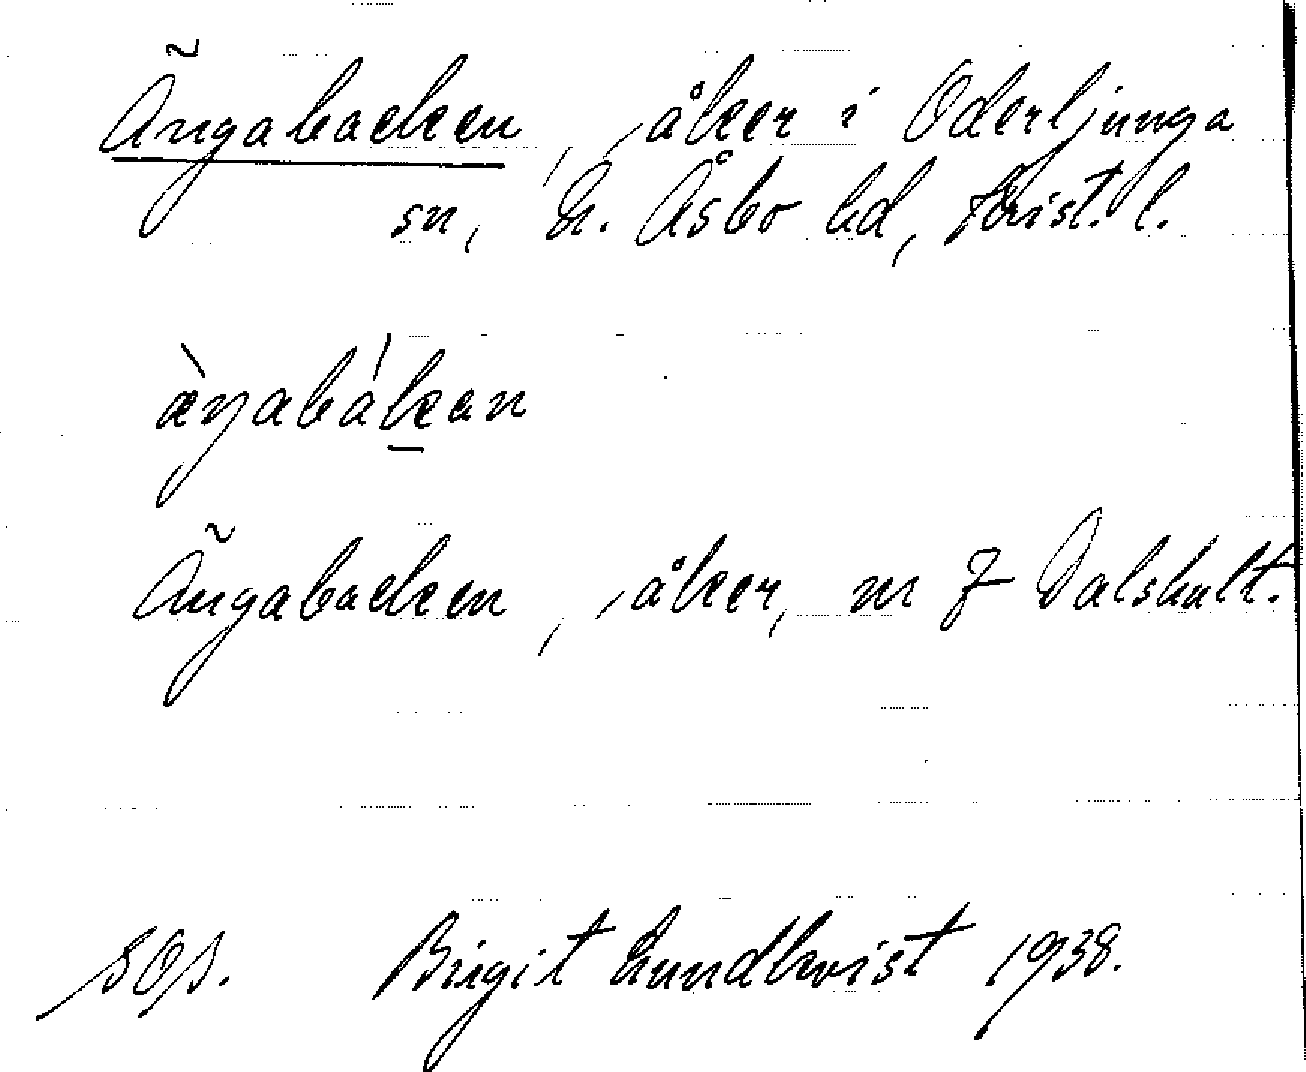 Ängabacken, åker i Oderljunga
sn, N. Åsbo hd, Krist. l.
äŋabákan
Ängabacken, åker, nr 7 Dalshult.
SOS. Birgit Lundkvist 1938.